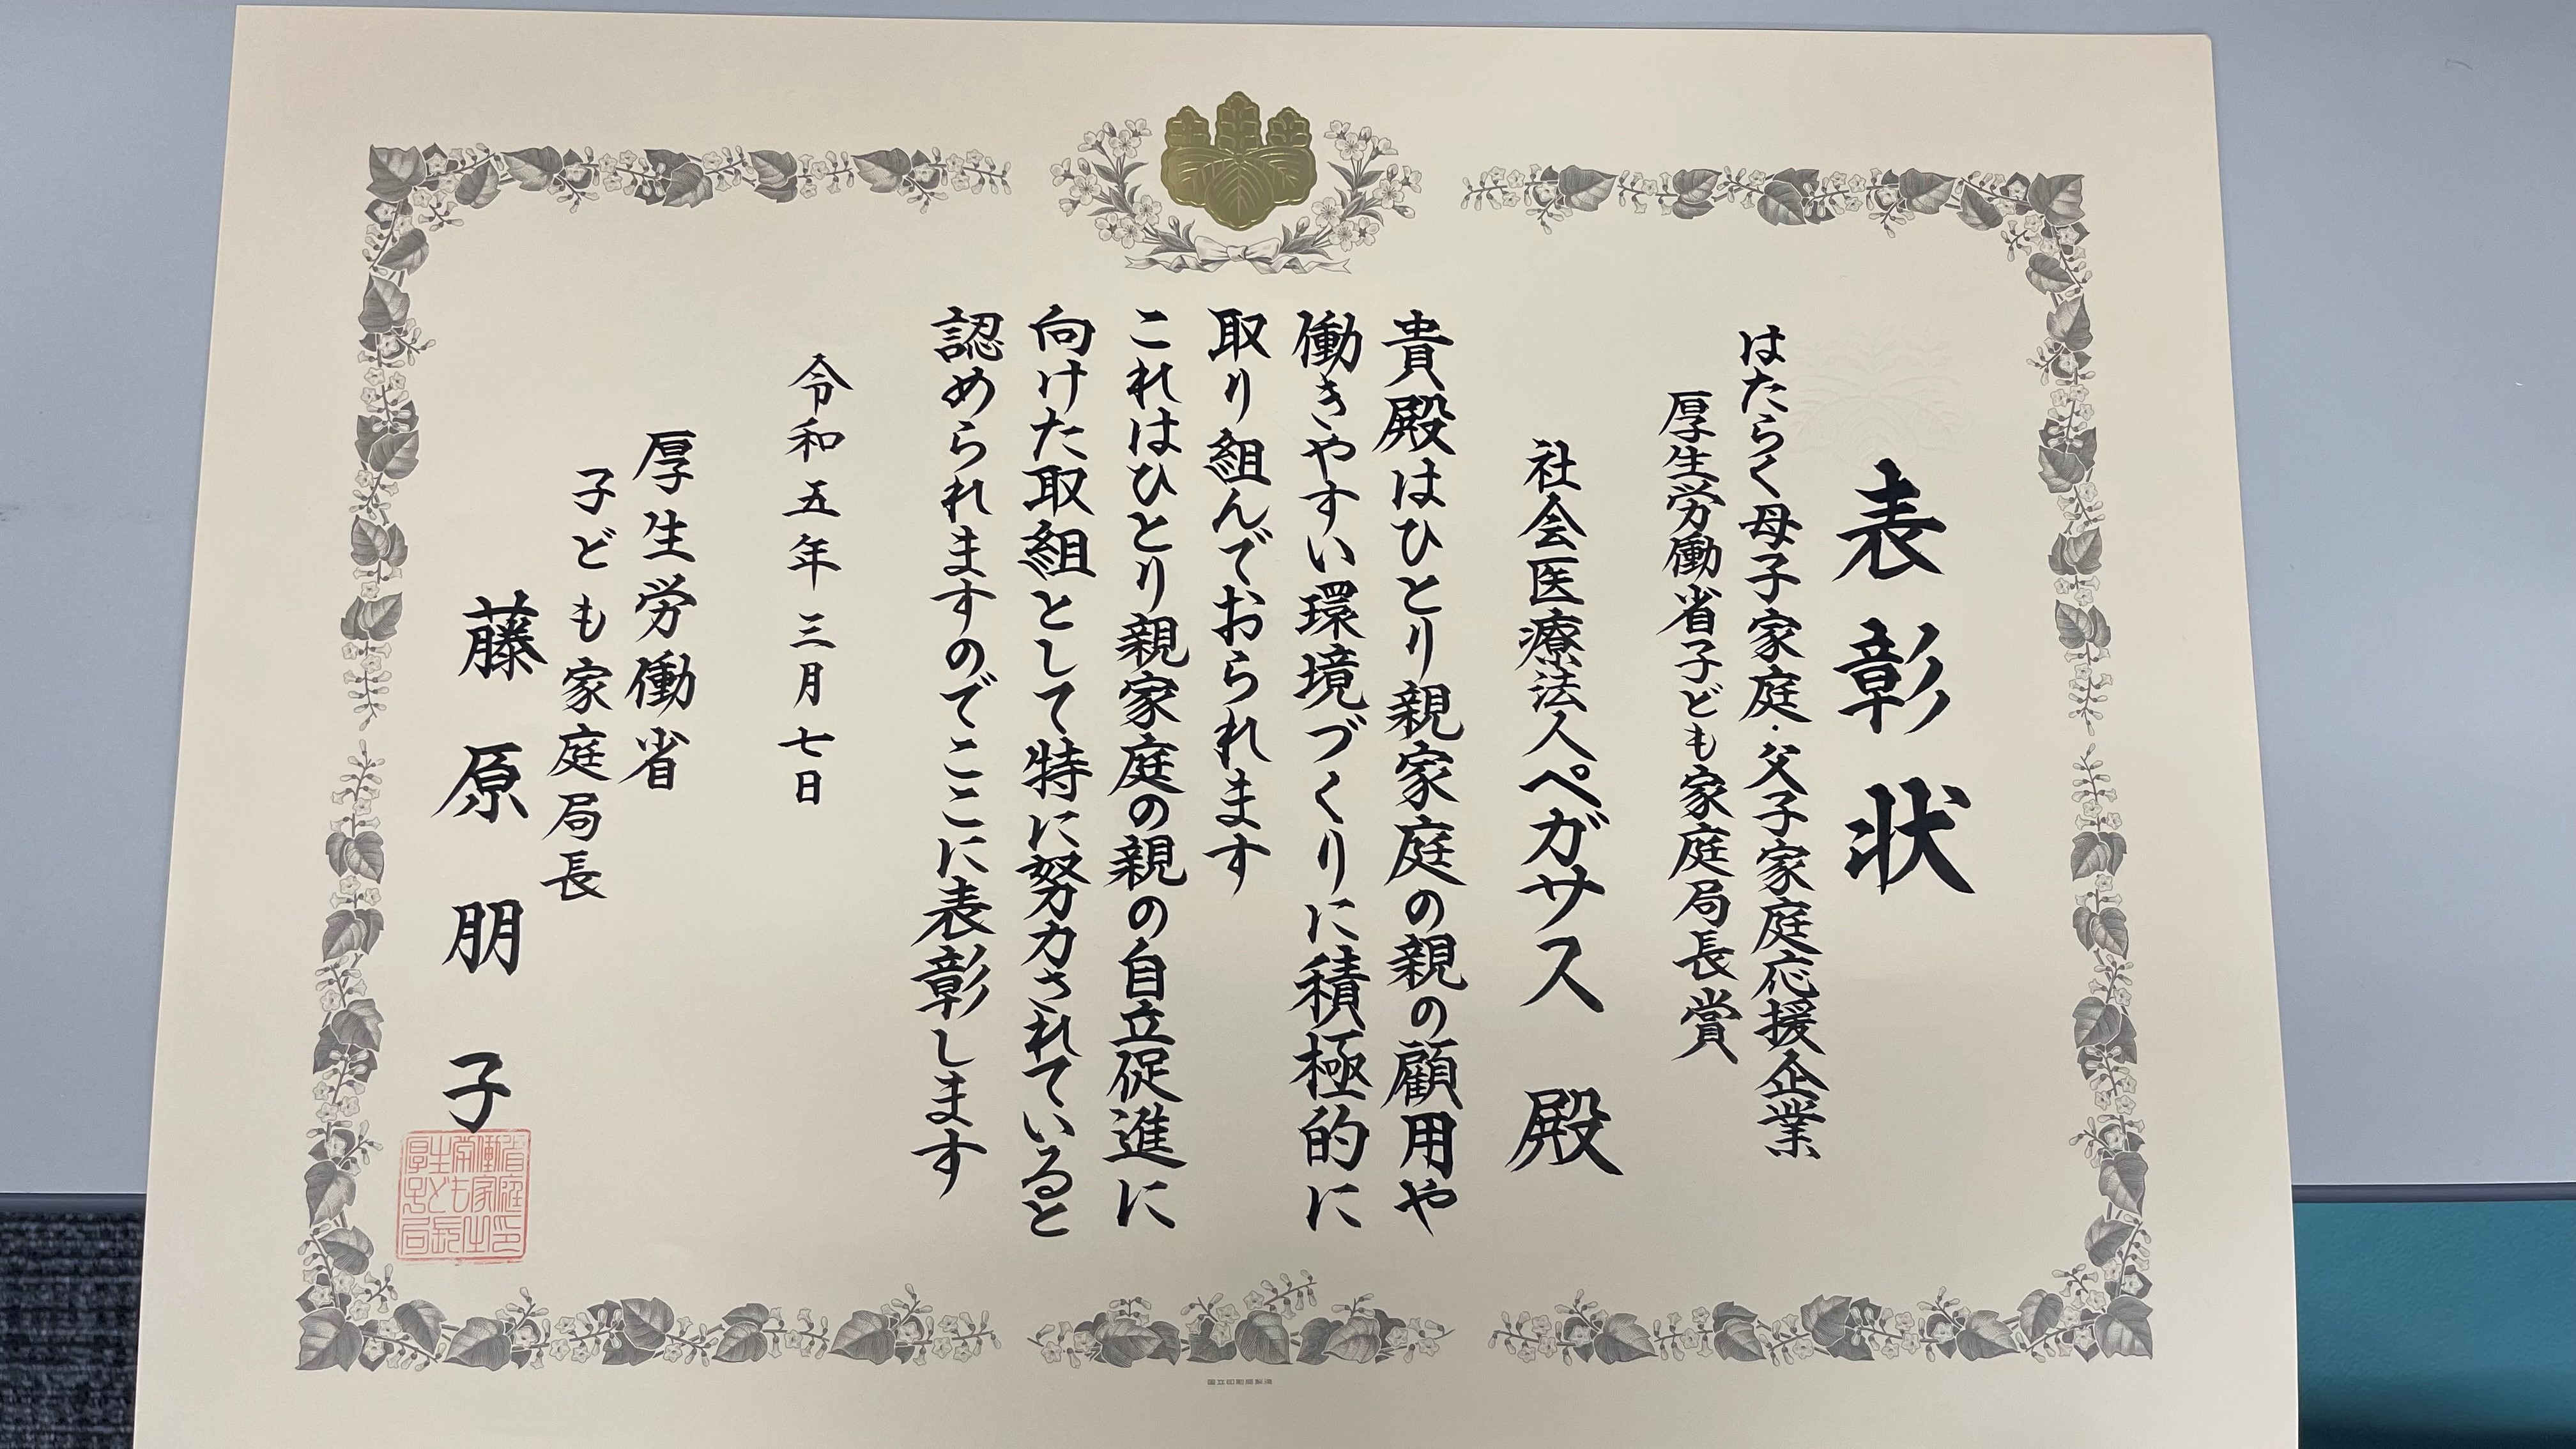 表彰状
はたらく母子家庭・父子家庭応援企業
厚生労働省子ども家庭局長賞
社会医療法人ペガサス 殿
貴殿はひとり親家庭の親の顧用や
働きやすい環境づくりに積極的に
取り組んでおられます
これはひとり親家庭の親の自立促進に
向けた取組として特に努力されていると
認められますのでここに表彰します
令和五年三月七日
厚生労働省
子ども家庭局長
藤原朋子